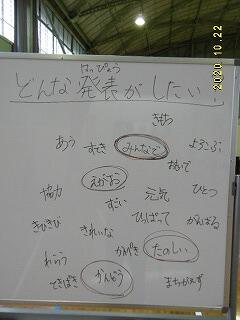 はっぴょう
どんな発表がしたい!
きもち
あう すてき みんなで よろこぶ
おもいで
えがお
協力 元気 ひとつ
すごい ひっぱって がんばる
きびきび きれいな
かんぺき たのしい
わらう
てきぱき かんどう まちがえず
2020 10.22